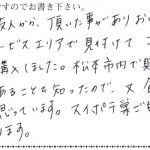 ですのでお書き下さい。
友人から、頂いた事がありおい
ービスエリアで見付けて
購入しました。松本市内で
あることも知ったので、又
思っています。スイポテ等ご
ります。